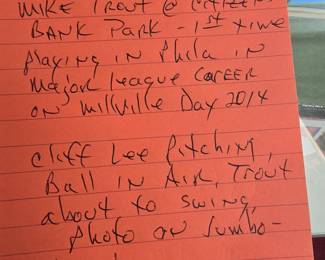 MIKE TROUT @ CITIZENS
BANK PARK - 1st time
playing in Phila in
major league CAREER
ON Millville Day 2014
Cliff Lee Pitching,
Ball in Air, Trout
about to swing,
Photo on Jumbo-